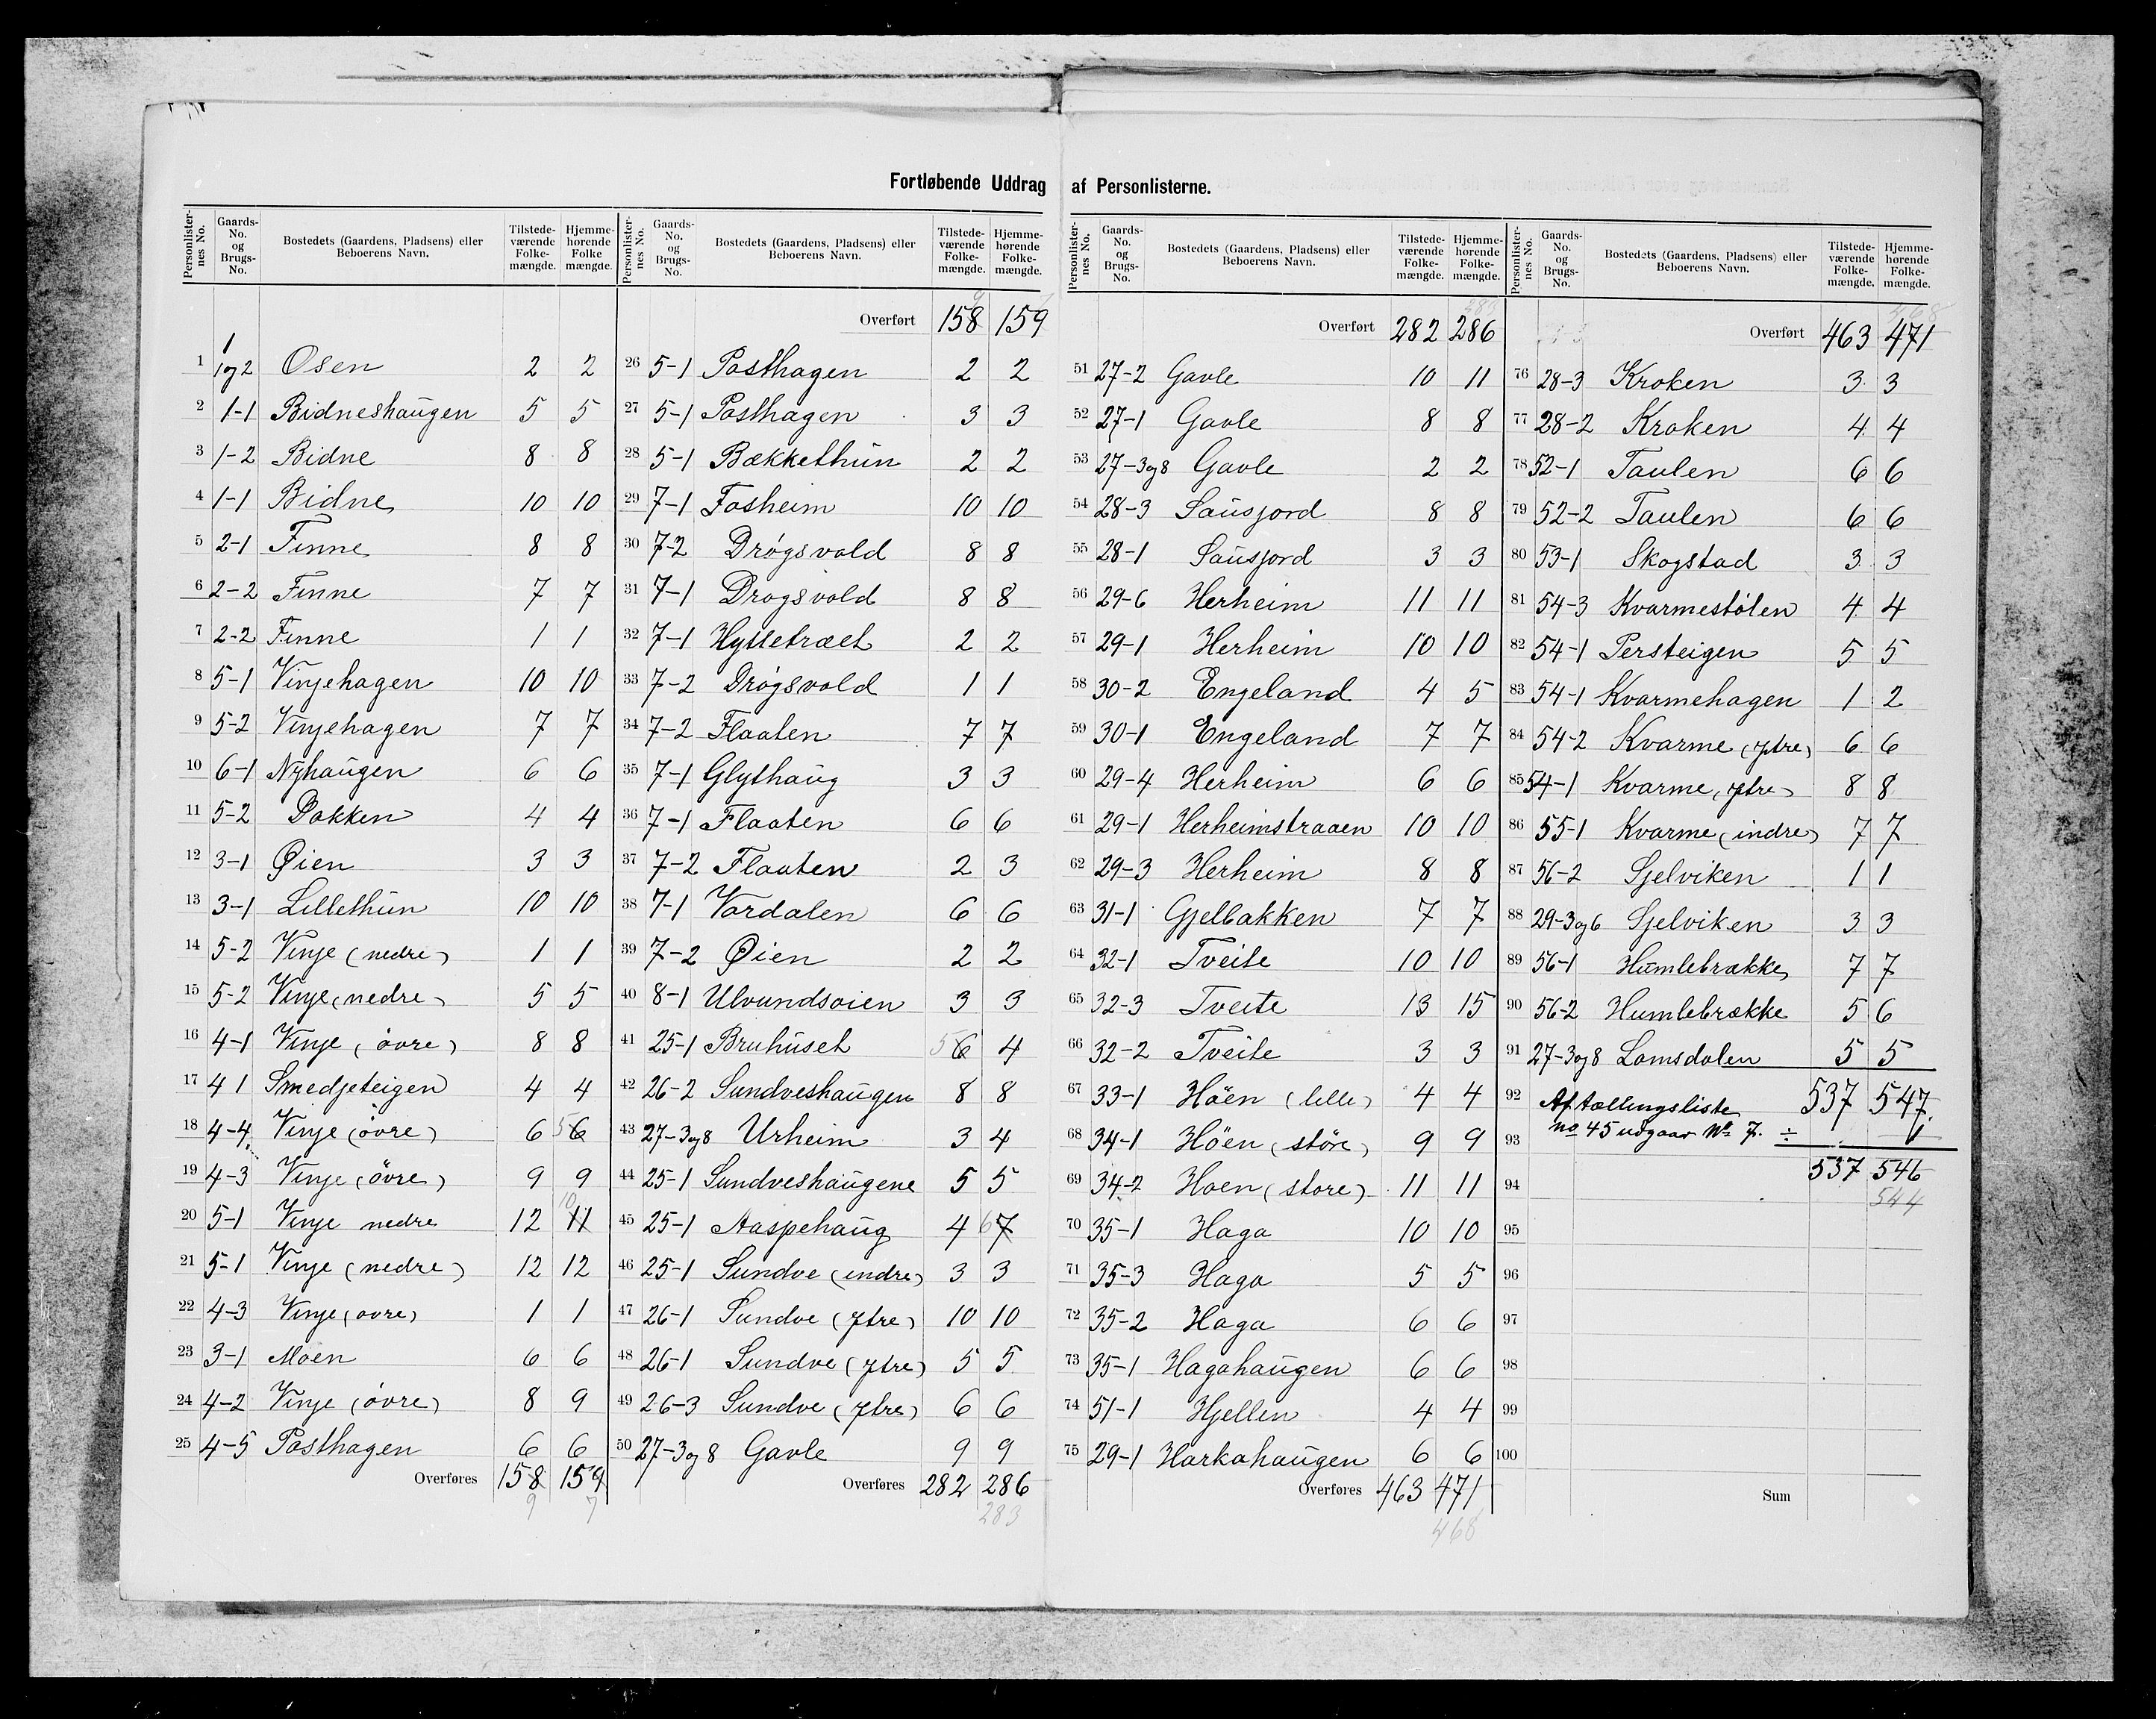 Fortløbende Uddrag af Personlisterne.
Personlister-nes No. Gaards-No. og Brugs-No. Bostedets (Gaardens, Pladsens) eller Beboerens Navn. Tilstede-værende Folke-mængde. Hjemme-hørende Folke mængde.
1 1 1 og 2 Osen 2 2
2 1-1 Bidneshaugen 5 5
3 1-2 Bidne 8 8
4 1-1 Bidne 10 10
5 2-1 Finne 8 8
6 2-2 Finne 7 7
7 2-2 Finne 1 1
8 5-1 Vinjehagen 10 10
9 5-2 Vinjehagen 7 7
10 6-1 Nyhaugen 6 6
11 5-2 Bakken 4 4
12 3-1 Øien 3 3
13 3-1 Lillethun 10 10
14 5-2 Vinje (nedre) 1 1
15 5-2 Vinje (nedre) 5 5
16 4-1 Vinje (övre) 8 8
17 4 1 Smedjeteigen 4 4
18 4-4 Vinje (övre) 6 5 6
19 4-3 Vinje (övre) 9 9
20 5-1 Vinje nedre 12 10 11
21 5-1 Vinje (nedre) 12 12
22 4-3 Vinje (ovre) 1 1
23 3-1 Moen 6 6
24 4-2 Vinje (övre) 8 9
25 4-5 Posthagen 6 6
Overføres 158 159
9 7
Personlister-nes No. Gaards-No. og Brugs-No. Bostedets (Gaardens, Pladsens) eller Beboerens Navn. Tilstede-værende Folke-mængde. Hjemme-hørende Folke-mængde.
Overført 158 159
26 5-1 Posthagen 2 2
27 5-1 Posthagen 3 3
28 5-1 Bækkethun 2 2
29 7-1 Fosheim 10 10
30 7-2 Drøgsvold 8 8
31 7-1 Drogsvold 8 8
32 7-1 Hyttetræet 2 2
33 7-2 Drøgsvold 1 1
34 7-2 Flaaten 7 7
35 7-1 Glythaug 3 3
36 7-1 Flaaten 6 6
37 7-2 Flaaten 2 3
38 7-1 Vordalen 6 6
39 7-2 Øien 2 2
40 8-1 Ulvundsoien 3 3
41 25-1 Bruhuset 5 6 4
42 26-2 Sundveshaugen 8 8
43 27-3 og 8 Urheim 3 4
44 25-1 Sundveshaugene 5 5
45 25-1 Aaspehaug 4 6 7
46 25-1 Sundve (indre) 3 3
47 26-1 Sundve (ytre) 10 10
48 26-1 Sundve (ytre) 5 5
49 26-3 Sundve (ytre) 6 6
50 27-3 og 8 Gavle 9 9
Overføres 282 286
283
Personlister-nes No. Gaards-No. og Brugs-No. Bostedets (Gaardens, Pladsens) eller Beboerens Navn. Tilstede-værende Folke-mængde. Hjemme-hørende Folke-mængde.
Overført 282 286
51 27-2 Gavle 10 11
52 27-1 Gavle 8 8
53 27-3 og 8 Gavle 2 2
54 28-3 Sausjord 8 8
55 28-1 Sausjord 3 3
56 29-6 Herheim 11 11
57 29-1 Herheim 10 10
58 30-2 Engeland 4 5
59 30-1 Engeland 7 7
60 29-4 Herheim 6 6
61 29-1 Herheimstraaen 10 10
62 29-3 Herheim 8 8
63 31-1 Gjelbakken 7 7
64 32-1 Tveite 10 10
65 32-3 Tveite 13 15
66 32-2 Tveite 3 3
67 33-1 Höen (lille) 4 4
68 34-1 Höen (störe) 9 9
69 34-2 Hoen (store) 11 11
70 35-1 Haga 10 10
71 35-3 Haga 5 5
72 35-2 Haga 6 6
73 35-1 Hagahaugen 6 6
74 51-1 Hjellen 4 4
75 29-1 Harkahaugen 6 6
Overføres 463 471
468
Personlister-nes No. Gaards-No. og Brugs-No. Bostedets (Gaardens, Pladsens) eller Beboerens Navn. Tilstede-værende Folke-mængde. Hjemme-hørende Folke-mængde.
Overført 463 471
76 28-3 Kroken 3 3
77 28-2 Kroken 4 4
78 52-1 Taulen 6 6
79 52-2 Taulen 6 6
80 53-1 Skogstad 3 3
81 54-3 Kvarmestölen 4 4
82 54-1 Persteigen 5 5
83 54-1 Kvarmehagen 1 2
84 54-2 Kvarme (ytre) 6 6
85 54-1 Kvarme (ytre) 8 8
86 55-1 Kvarme (indre) 7 7
87 56-2 Sjelviken 1 1
88 29-3 og 6 Sjelviken 3 3
89 56-1 Humlebrække 7 7
90 56-2 Humlebrække 5 6
91 27-3 og 8 Lomsdalen 5 5
92 Aftællingsliste 537 547.
93 no 45 udgaar No 7. ÷ 1
94 537 546
544
95
96
97
98
99
100
Sum